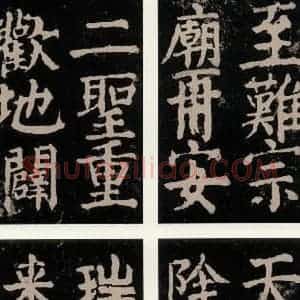 至難宗
廟再安
二聖重
歡地闢
天
除
瑞
来
Shufaziliao.com